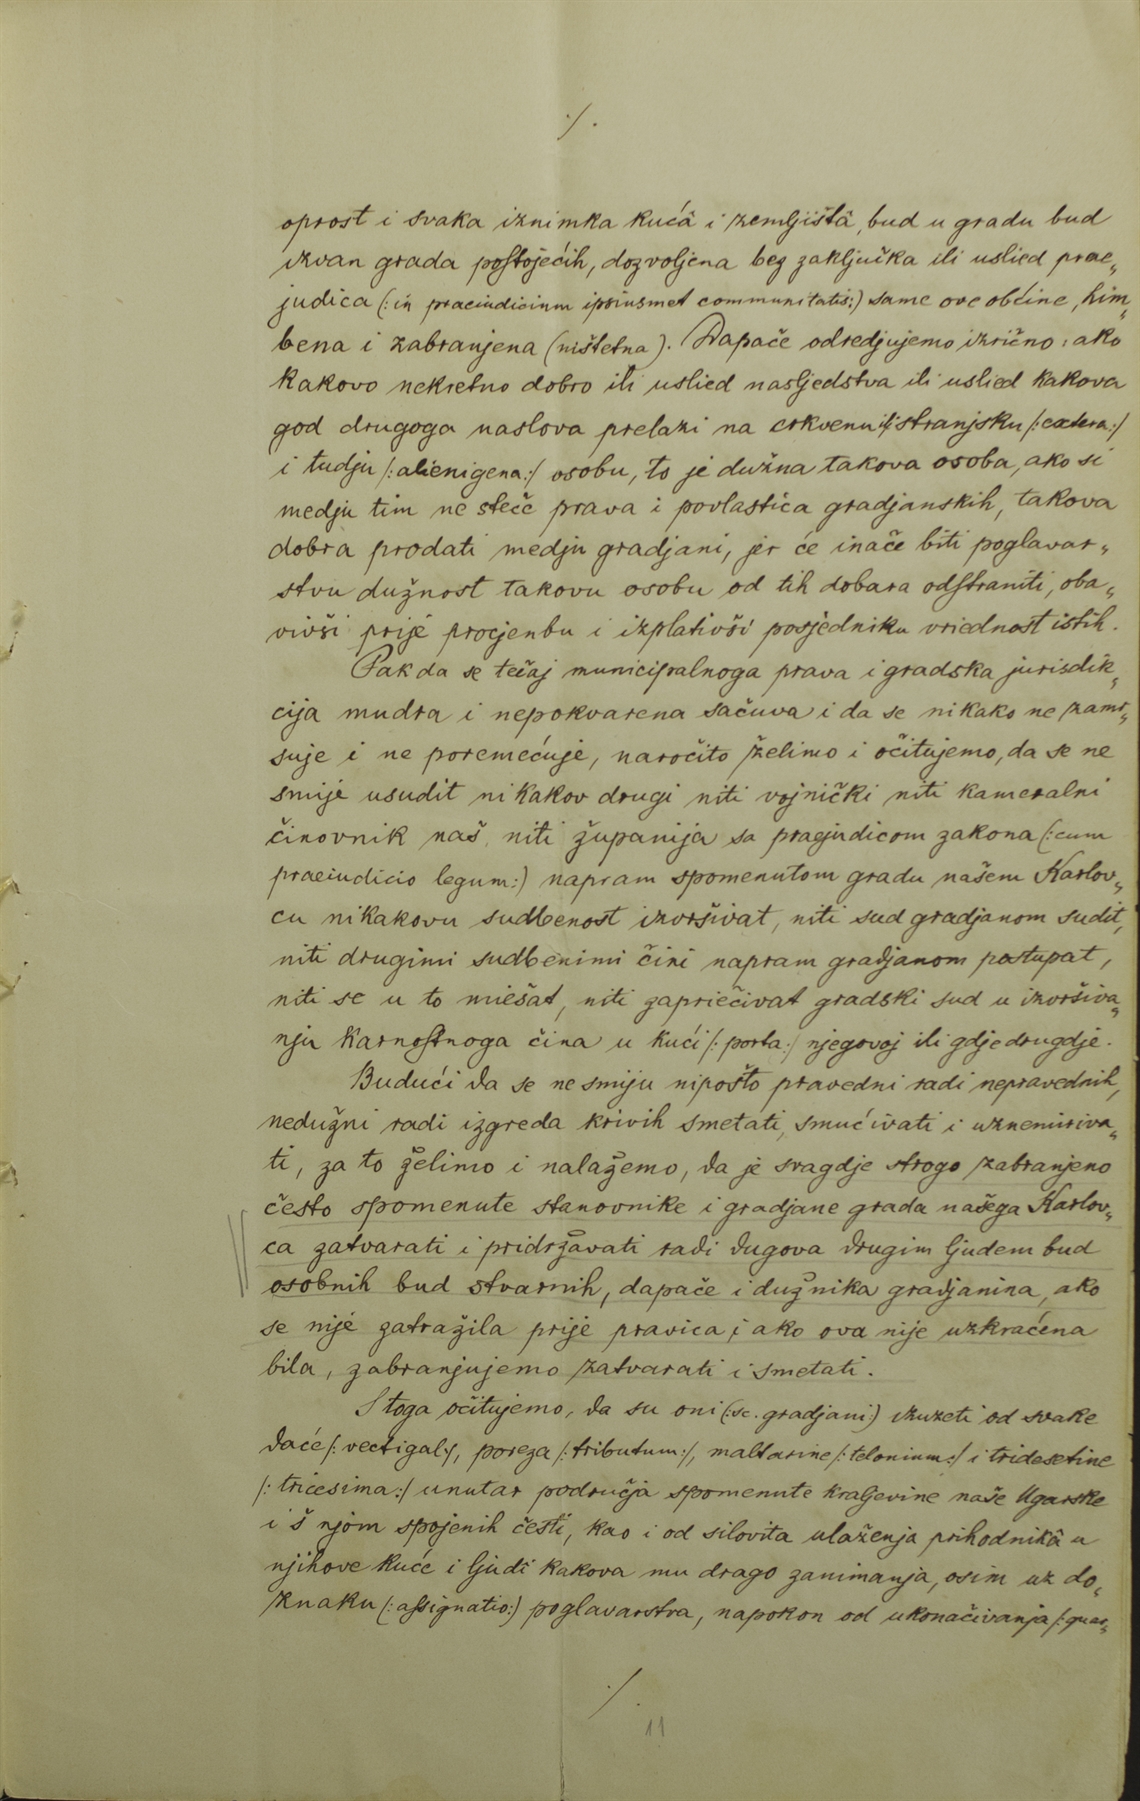 ./.
oprost i svaka iznimka kućâ i zemljištâ, bud u gradu bud
izvan grada postojećih, dozvoljena bez zaključka ili uslied prae„
judica (: in praeiudicium ipsiusmet communitatis:) same ove obćine, him„
bena i zabranjena (ništetna). Dapače odredjujemo izrično: ako
kakovo nekretno dobro ili uslied nasljedstva ili uslied kakova
god drugoga naslova prelazi na crkvenu ili stranjsku /: extera:/
i tudju /: alienigena:/ osobu, to je dužna takova osoba, ako si
medju tim ne steče prava i povlastica gradjanskih, takova
dobra prodati medju gradjani, jer će inače biti poglavar„
stvu dužnost takovu osobu od tih dobara odstraniti, oba„
vivši prije procjenbu i izplativši posjedniku vriednost istih.
Pak da se tečaj municipalnoga prava i gradska jurisdik„
cija mudra i nepokvarena sačuva i da se nikako ne zamr„
suje i ne poremećuje, naročito želimo i očitujemo, da se ne
smije usudit nikakov drugi niti vojnički niti kameralni
činovnik naš niti županija sa praejudicom zakona (: cum
praeiudicio legum:) napram spomenutom gradu našem Karlov„
cu nikakovu sudbenost izvršivat, niti sud gradjanom sudit,
niti drugimi sudbenimi čini napram gradjanom postupat,
niti se u to miešat, niti zapriečivat gradski sud u izvršiva„
nju karnostnoga čina u kući /: porta:/ njegovoj ili gdje drugdje.
Budući da se ne smiju nipošto pravedni radi nepravednih,
nedužni radi izgreda krivih smetati, smućivati i uznemiriva„
ti, za to želimo i nalažemo, da je svagdje strogo zabranjeno
često spomenute stanovnike i gradjane grada našega Karlov„
ca zatvarati i pridržavati radi dugova drugim ljudem bud
osobnih bud stvarnih, dapače i dužnika gradjanina, ako
se nije zatražila prije pravica i ako ova nije uzkraćena
bila, zabranjujemo zatvarati i smetati.
Stoga očitujemo, da su oni (: sc. gradjani) izuzeti od svake
daće /: vectigal:/, poreza /: tributum:/, maltarine /: telonium:/ i tridesetine
/: tricesima:/ unutar područja spomenute kraljevine naše Ugarske
i š njom spojenih česti, kao i od silovita ulaženja prihodnikâ u
njihove kuće i ljudi kakova mu drago zanimanja, osim uz do„
znaku (: assignatio:) poglavarstva, napokon od ukonačivanja /: quar„
./.
11